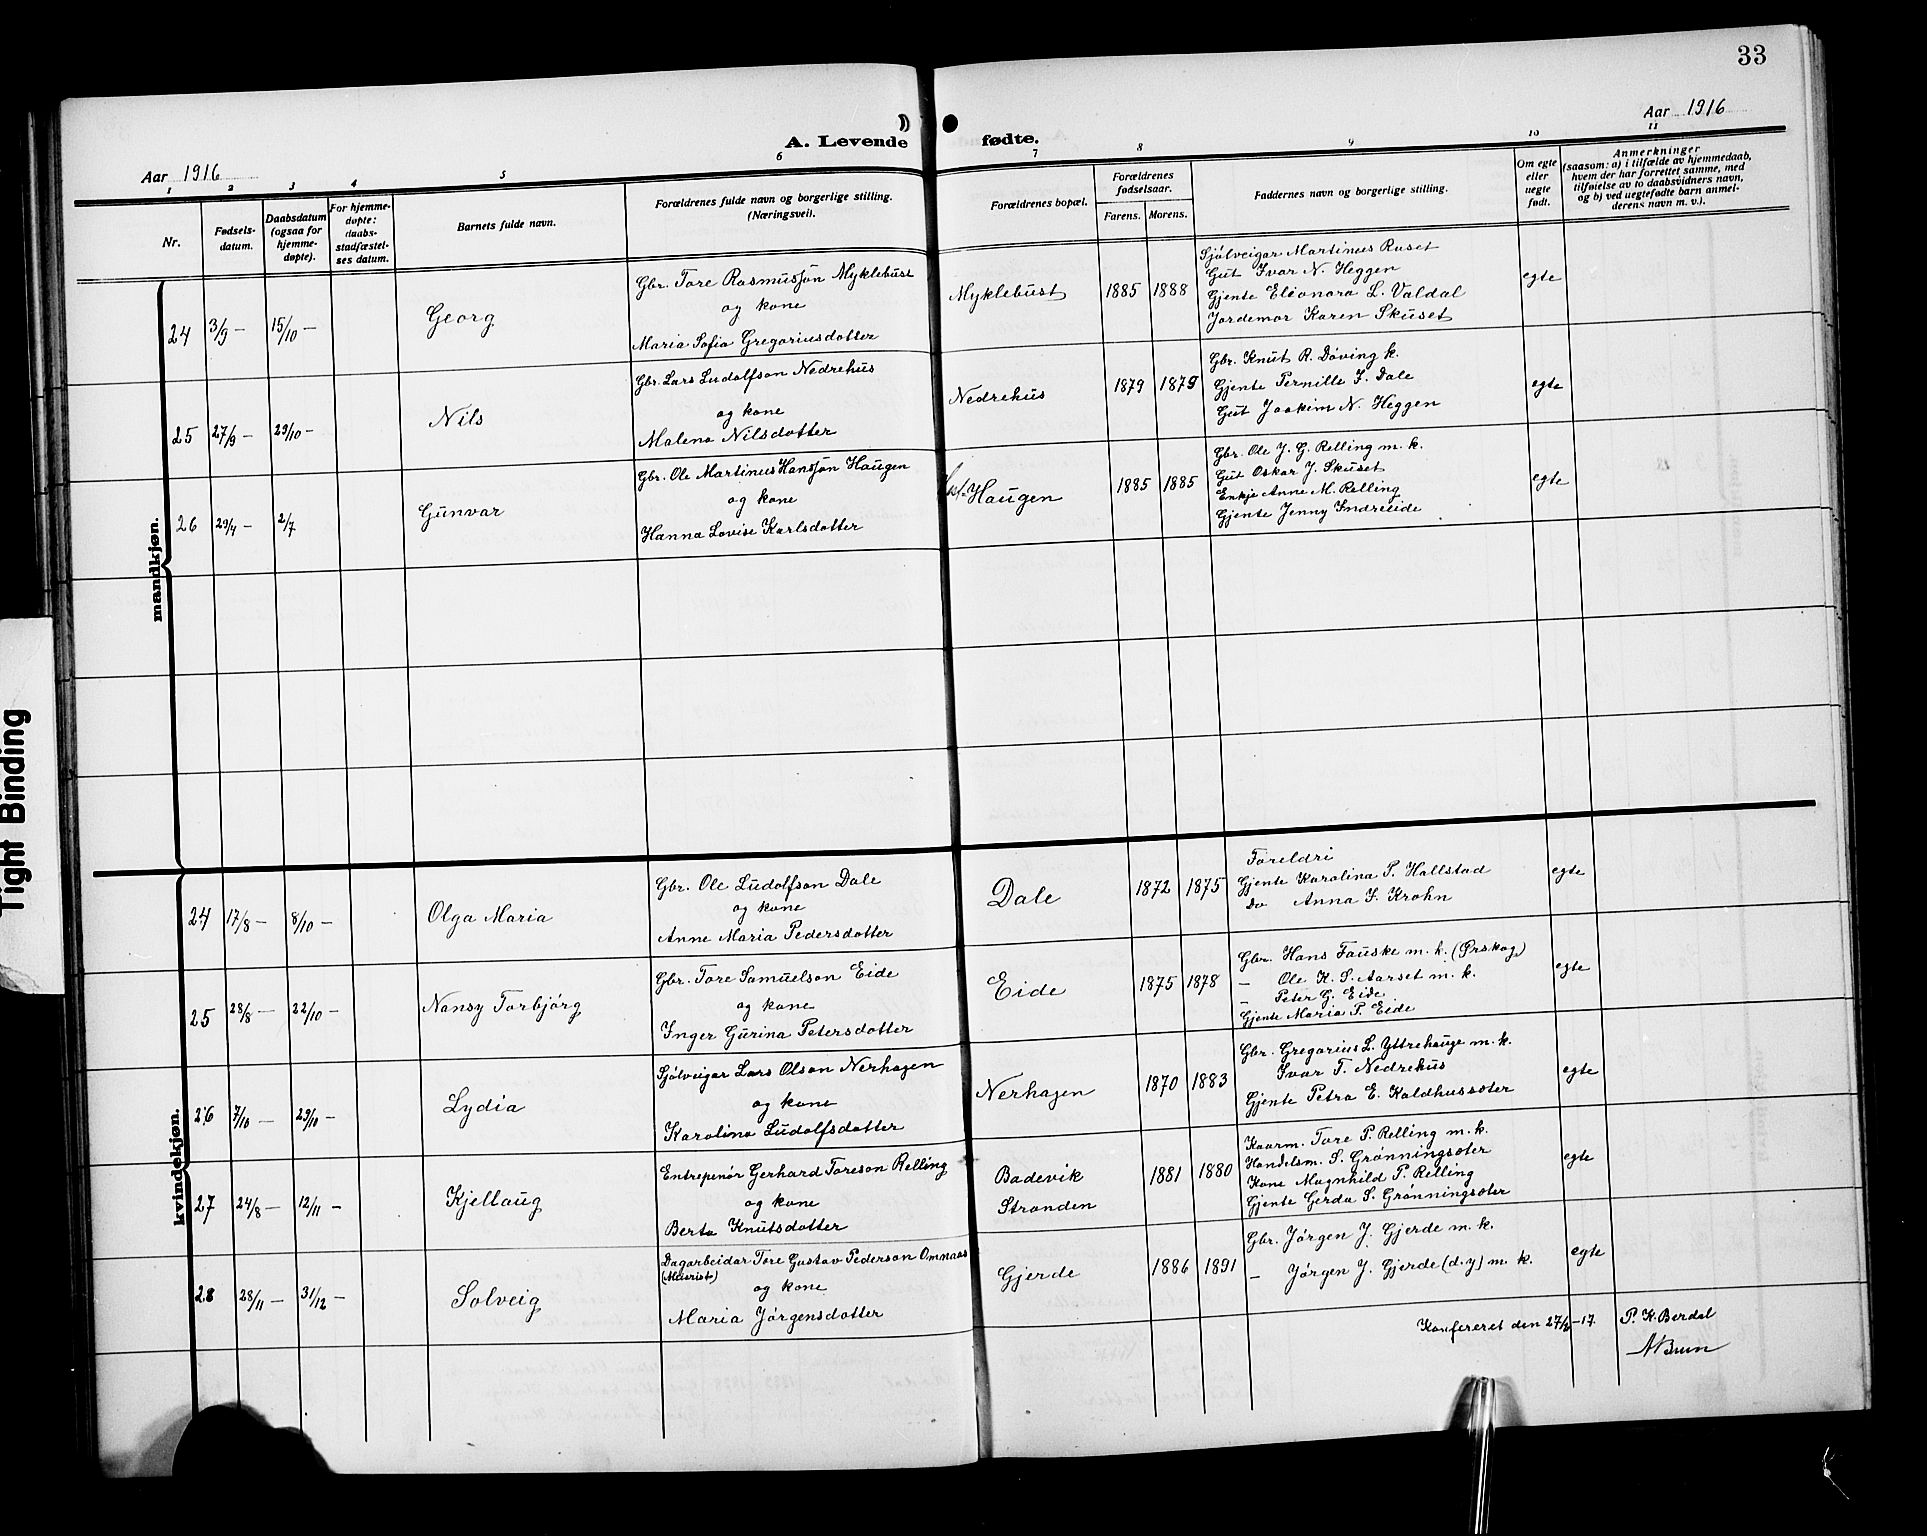 33
Aar 1916
A. Levende fødte.
Aar 1916
1 2 3 4 5 6 7 8 9 10 11
Nr.
Fødsels-
datum.
Daabsdatum
(ogsaa for
hjemme-
døpte).
For hjemme-
døpte:
daabs-
stadfæstel-
ses datum.
Barnets fulde navn.
Forældrenes fulde navn og borgerlige stilling.
(Næringsvei).
Forældrenes bopæl.
Forældrenes
fødselsaar.
Farens. Morens.
Faddernes navn og borgerlige stilling.
Om egte
eller
uegte
født.
Anmerkninger
(saasom: a) i tilfælde av hjemmedaab,
hvem der har forrettet samme, med
tilføielse av to daabsvidners navn,
og b) ved uegtefødte barn anmel-
derens navn m. v.).
mandkjøn.
24 3/9 — 15/10 — Georg
Gbr. Tore Rasmusson Myklebust
og kone
Maria Sofia Gregoriusdotter
Myklebust 1885 1888
Sjølveigar Martinus Ruset
Gut Ivar N. Heggen
Gjente Eleonora L. Valdal
Jordemor Karen Skuset
egte
25 27/9 — 29/10 — Nils
Gbr. Lars Ludolfson Nedrehus
og kone
Malena Nilsdotter
Nedrehus 1879 1879
Gbr. Knut R. Døving k.
Gjente Pernille I. Dale
Gut Joakim N. Heggen
egte
26 29/4 — 2/7 Gunvar
Gbr. Ole Martinus Hansson Haugen
og kone
Hanna Lovise Karlsdotter
Haugen 1885 1885
Gbr. Ole J. G. Relling m. k.
Gut Oskar J. Skuset
Enkje Anne M. Relling
Gjente Jenny Indreeide
egte
kvindekjøn.
24 17/8 — 8/10 — Olga Maria
Gbr. Ole Ludolfson Dale
og kone
Anne Maria Pedersdotter
Dale 1872 1875
Foreldri
Gjente Karolina P. Hallstad
Do Anna I. Krohn
egte
25 28/8 — 22/10 — Nansy Torbjørg
Gbr. Tore Samuelson Eide
og kone
Inger Gurina Petersdotter
Eide 1875 1878
Gbr. Hans Fauske m. k. (Ørskog)
— Ole K. S. Aarset m. k.
— Peter G. Eide
Gjente Maria P. Eide
egte
26 7/10 — 29/10 — Lydia
Sjølveigar Lars Olson Nerhagen
og kone
Karolina Ludolfsdotter
Nerhagen 1870 1883
Gbr. Gregorius L. Yttrehauge m. k.
Ivar T. Nedrehus
Gjente Petra E. Kaldhussæter
egte
27 24/8 — 12/11 — Kjellaug
Entrepenør Gerhard Toreson Relling
og kone
Berta Knutsdotter
Badevik
Stranden
1881 1880
Kaarm. Tore P. Relling m. k.
Handelsm. S. Grønningsæter
Kone Magnhild P. Relling
Gjente Gerda S. Grønningsæter
egte
28 28/11 — 31/12 — Solveig
Dagarbeidar Tore Gustav Pederson Omnaas
og kone
Maria Jørgensdotter
Gjerde 1886 1891
Gbr. Jørgen J. Gjerde m. k.
— Jørgen J. Gjerde (d.y) m. k.
egte
Konfereret den 27/2-17. P. K. Berdal
ABruun
Tight Binding